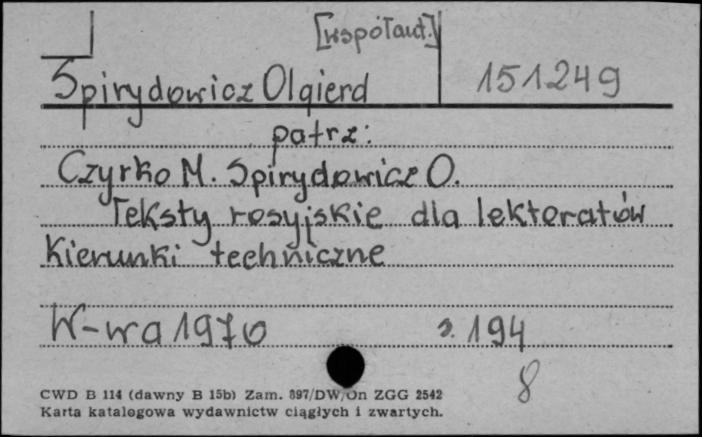 [współaut.]
Spirydowicz Olgierd 151249
patrz:
Czyrko M. Spirydowicz O.
Teksty rosyjskie dla lektoratów
kierunki techniczne
W-wa 1970 s. 194
8
CWD B 114 (dawny B 15b) Zam. 897/DW/On ZGG 2542
Karta katalogowa wydawnictw ciągłych i zwartych.